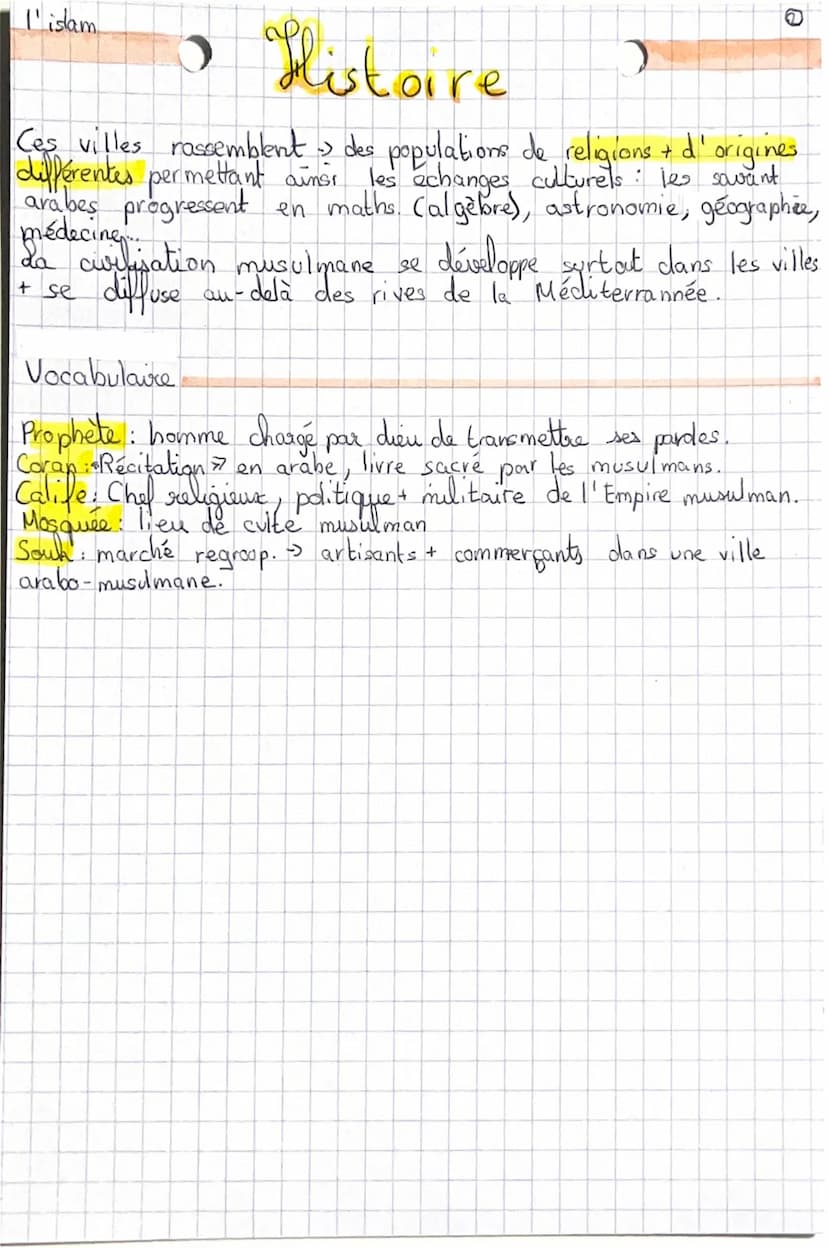 l'islam
②
Histoire
Ces villes rassemblent → des populations de religions + d'origines
différentes permettant ainsi les échanges culturels : les savant
arabes progressent en maths. (algèbre), astronomie, géographie,
médecine...
La civilisation musulmane se développe surtout dans les villes
+ se diffuse au-delà des rives de la Méditerrannée.
Vocabulaire
Prophète : homme chargé par dieu de transmettre ses paroles.
Coran : «Récitation» en arabe, livre sacré pour les musulmans.
Calife : Chef religieux, politique + militaire de l'Empire musulman.
Mosquée : lieu de culte musulman
Souk : marché regroup. → artisants + commerçants dans une ville
arabo-musulmane.